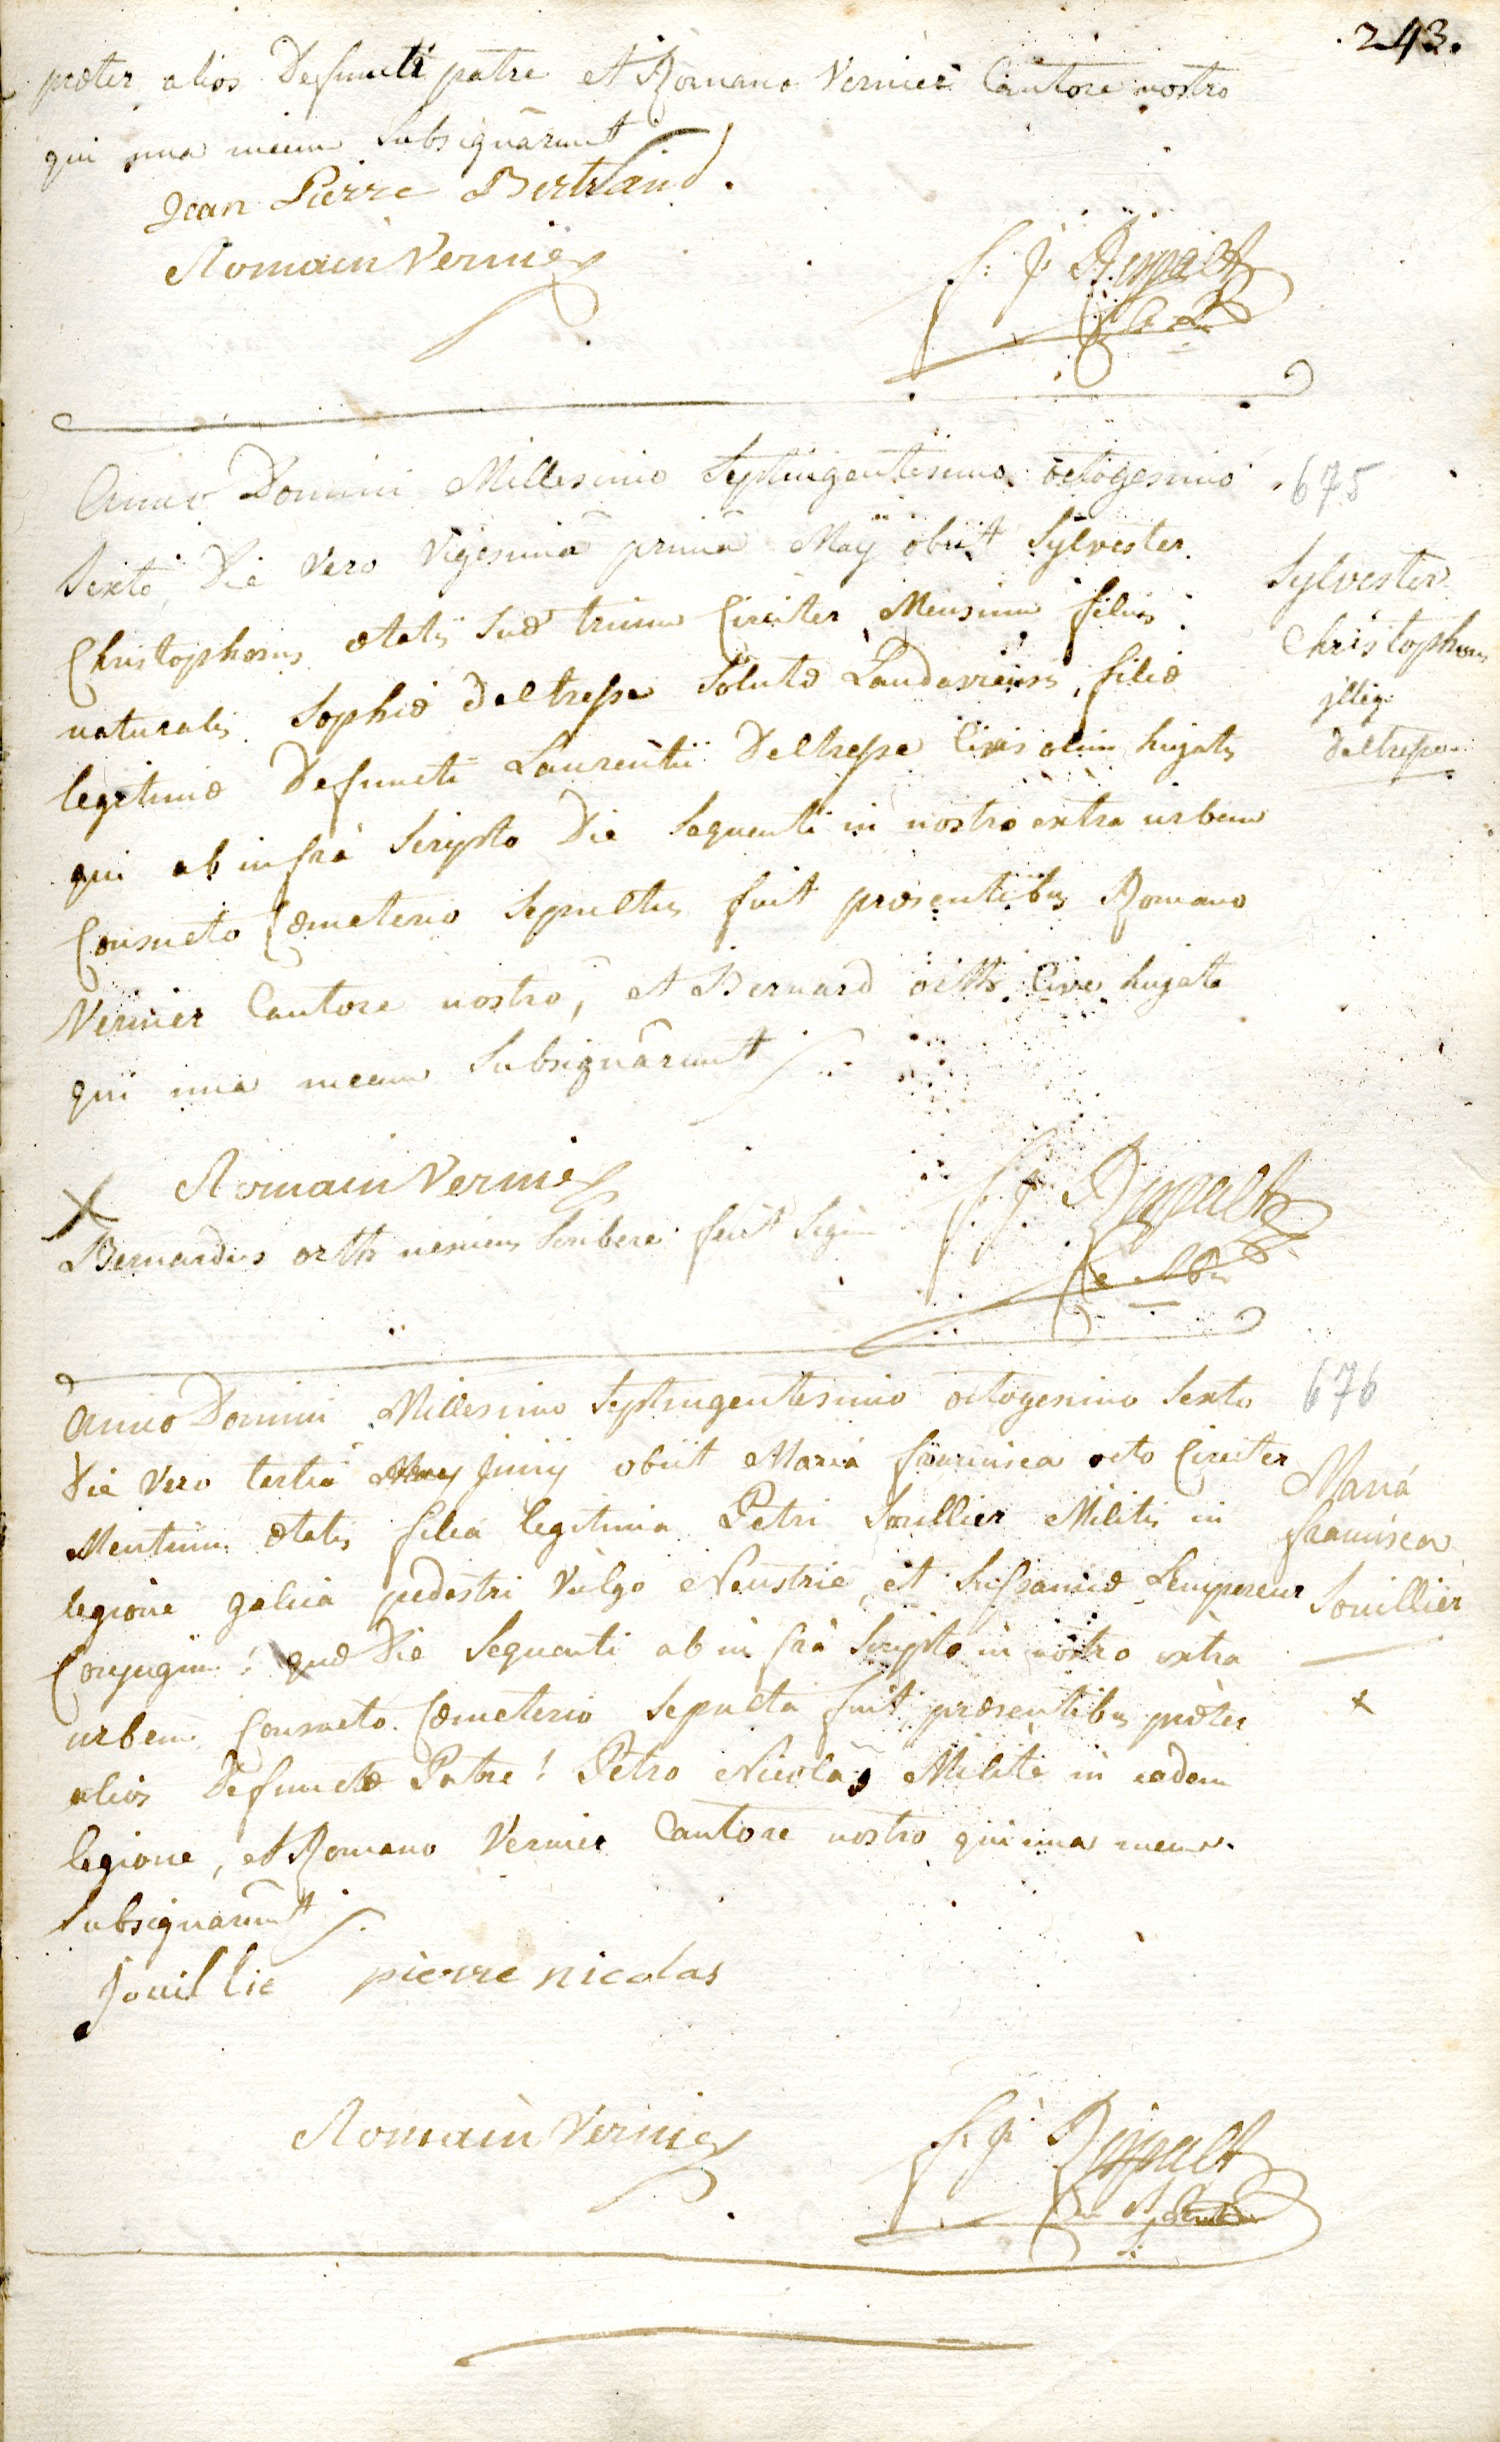 243.
præter alios Defuncti patre et Romano Vernier Cantore nostro
qui una mecum Subsignârunt
Jean Pierre Bertrand.
Romain Vernier
f: j: Rippalt
Anno Domini Millesimo Septingentesimo octogesimo
675
Sexto, Die Vero Vigesimâ primâ Maÿ obiit Sylvester
Sylvester
Christophorus ætatis Suæ trium Circiter Mensium filius
Christophorus
naturalis Sophiæ Deltresse Solutæ Landaviensis, filiæ
jlleg.
legitimæ Defuncti Laurentii Deltresse Civis olim hujatis
Deltresse
qui ab infrà Scripto Die Sequenti in nostro extra urbem
Consueto Cæmeterio Sepultus fuit præsentibus Romano
Vernier Cantore nostro, et Bernard orth Cive hujate
qui una mecum Subsignârunt
Romain Vernier
f: j: Rippalt
Bernardus orth nescius Scribere fecit Signum
Anno Domini Millesimo Septingentesimo octogesimo Sexto
676
Die Vero tertiâ Junij obiit Maria francisca octo Circiter
Maria
Mensium ætatis filia legitima Petri Souillier Militis in
francisca
legione galica pedestri Vulgo Neustrie, et Lempereur
Souillier
Conjugum! quæ Die Sequenti ab infrà Scripto in nostro extra
urbem Consueto Cæmeterio Sepulta fuit præsentibus præter
alios Defunctæ Patre! Petro Nicolas Milite in eadem
legione, et Romano Vernier Cantore nostro qui una mecum
Subsignarunt
Souillie pierre nicolas
Romain Vernier
f: j: Rippalt